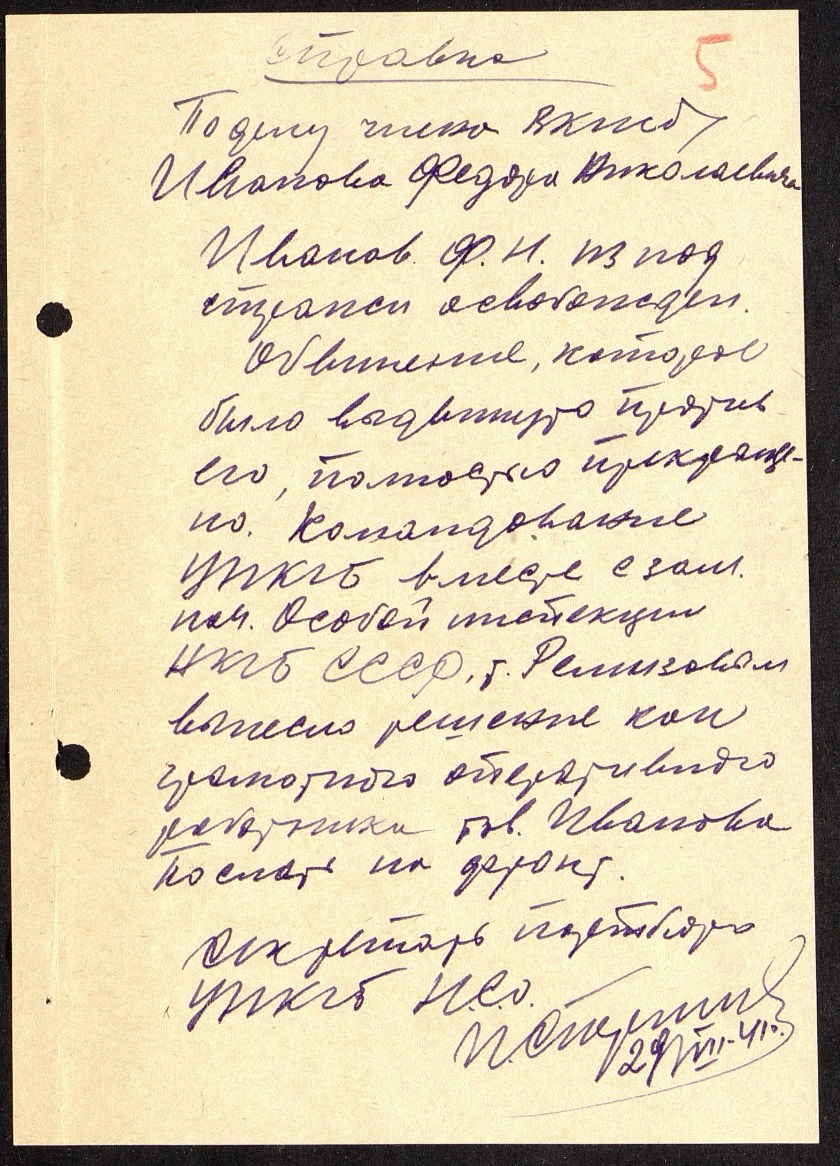 Справка
5
По делу члена ВКП(б)
Иванова Федора Николаевича
Иванов Ф. Н. из под
стражи освобожден.
Обвинение, которое
было выдвинуто против
его, полностью прекраще-
но. Командование
УНКГБ вместе с зам.
нач. Особой инспекции
НКГБ СССР, т. Ремизовым
вынесло решение как
грамотного оперативного
работника тов. Иванова
послать на фронт.
Секретарь партбюро
УНКГБ Н.С.О.
29/VII-41г.